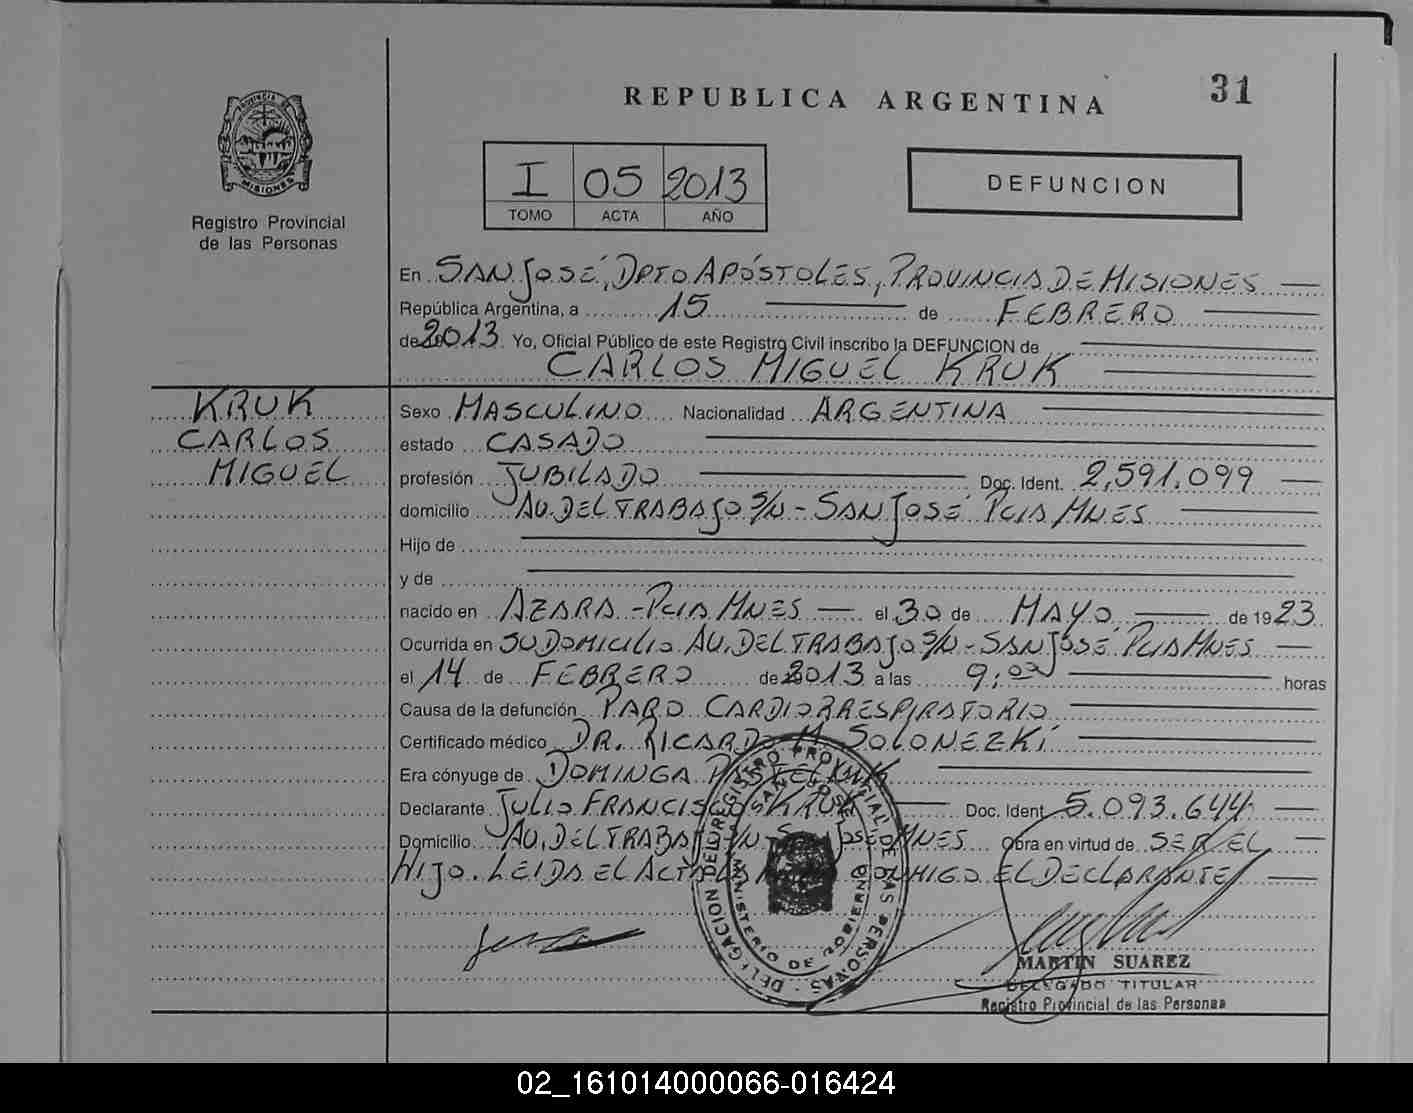 REPUBLICA ARGENTINA
31
PROVINCIA DE
MISIONES
Registro Provincial
de las Personas
I 05 2013
TOMO ACTA AÑO
DEFUNCION
En SAN JOSÉ, DPTO APÓSTOLES, PROVINCIA DE MISIONES
República Argentina, a 15 de FEBRERO
de 2013. Yo, Oficial Público de este Registro Civil inscribo la DEFUNCION de
CARLOS MIGUEL KRUK
KRUK
CARLOS
MIGUEL
Sexo MASCULINO Nacionalidad ARGENTINA
estado CASADO
profesión JUBILADO Doc. Ident. 2,591.099
domicilio AV. DEL TRABAJO S/N - SAN JOSÉ PCIA MNES
Hijo de
y de
nacido en AZARA - PCIA MNES el 30 de MAYO de 1923
Ocurrida en SU DOMICILIO AV. DEL TRABAJO S/N - SAN JOSÉ PCIA MNES
el 14 de FEBRERO de 2013 a las 9:00 horas
Causa de la defunción PARO CARDIORRESPIRATORIO
Certificado médico DR. RICARDO M. SOLONEZKI
Era cónyuge de DOMINGA
Declarante JULIO FRANCISCO KRUK Doc. Ident. 5.093.644
Domicilio AV. DEL TRABAJO S/N - SAN JOSÉ MNES Obra en virtud de SER EL
HIJO. LEIDA EL ACTA LA FIRMA CONMIGO EL DECLARANTE
DELEGACION DEL REGISTRO PROVINCIAL DE LAS PERSONAS
SAN JOSE
MINISTERIO DE GOBIERNO
MARTIN SUAREZ
DELEGADO TITULAR
Registro Provincial de las Personas
02_161014000066-016424